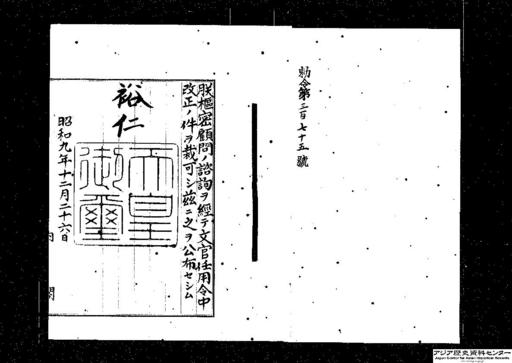 勅令第三百七十五號
朕樞密顧問ノ諮詢ヲ經テ文官任用令中
改正ノ件ヲ裁可シ茲ニ之ヲ公布セシム
裕仁
天皇御璽
昭和九年十二月二十六日
閣
アジア歴史資料センター
Japan Center for Asian Historical Records